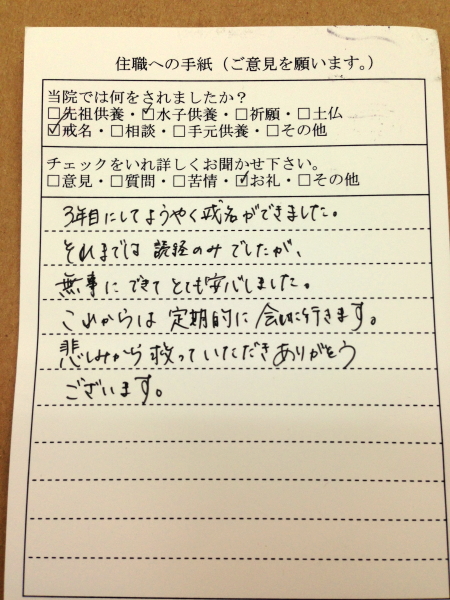 住職への手紙（ご意見を願います。）
当院では何をされましたか？
□先祖供養・☑水子供養・□祈願・□土仏
☑戒名・□相談・□手元供養・□その他
チェックをいれ詳しくお聞かせ下さい。
□意見・□質問・□苦情・☑お礼・□その他
3年目にしてようやく戒名ができました。
それまでは読経のみでしたが、
無事にできてとても安心しました。
これからは定期的に会いに行きます。
悲しみから救っていただきありがとう
ございます。